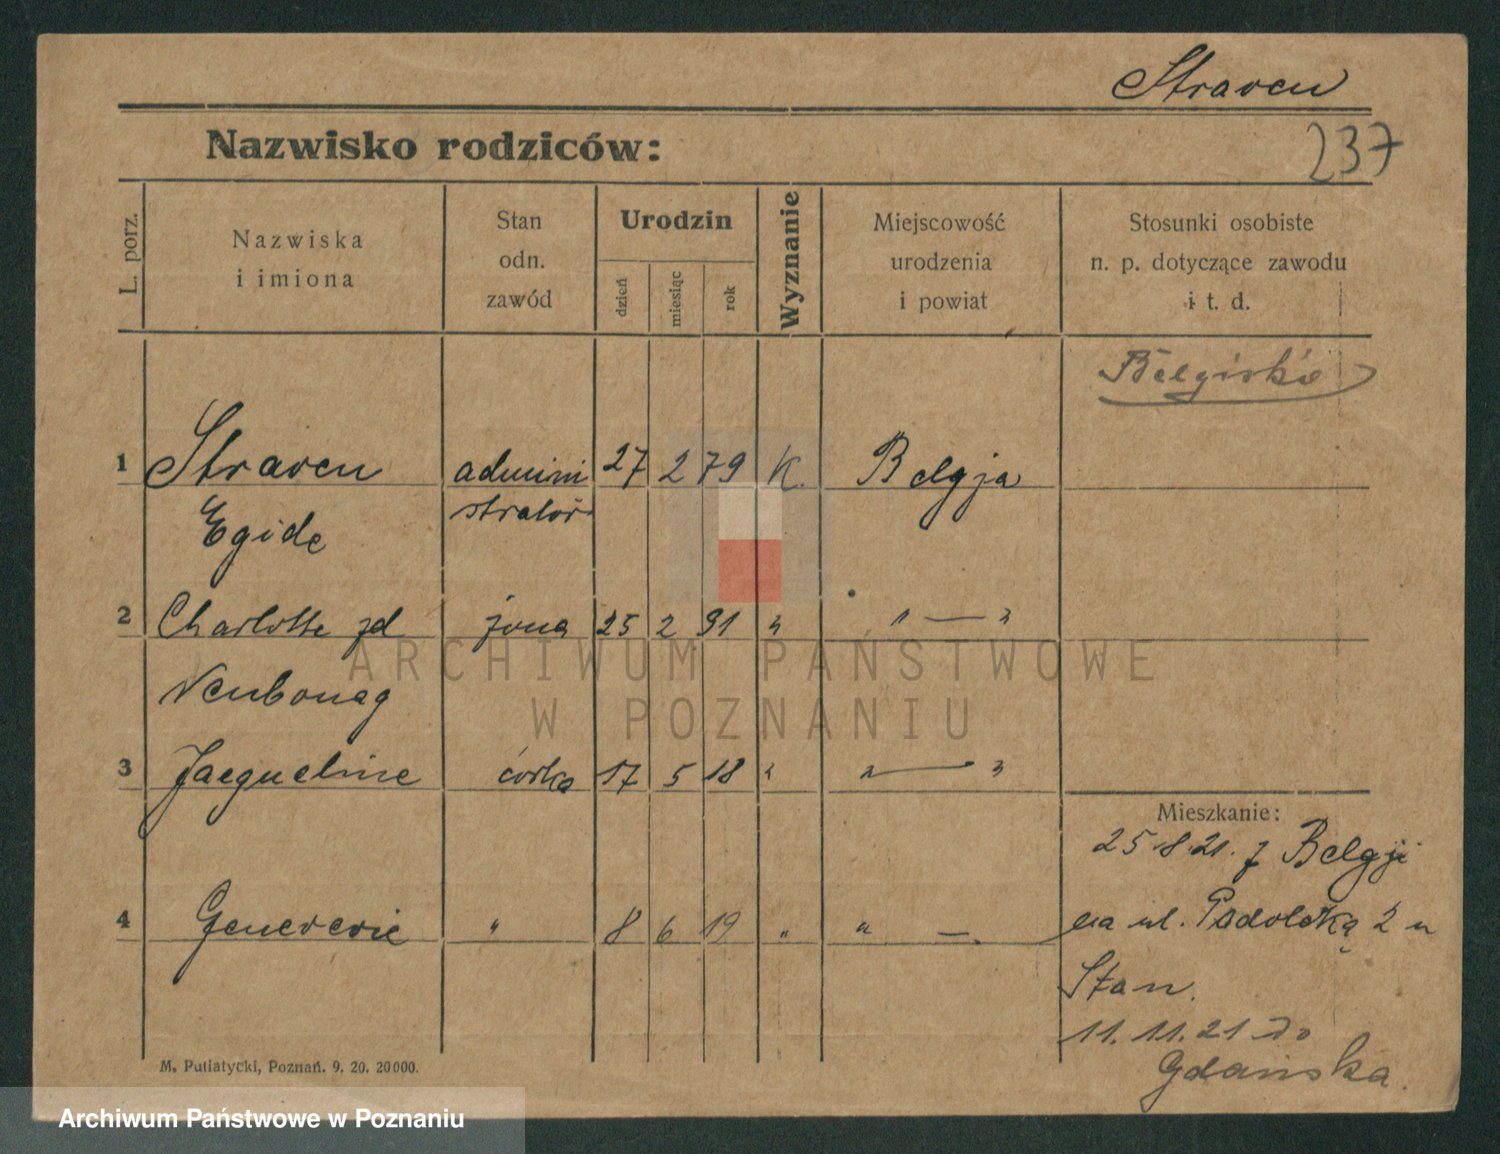 Straven
237
Nazwisko rodziców:
L. porz.
Nazwiska
i imiona
Stan
odn.
zawód
Urodzin
dzień
miesiąc
rok
Wyznanie
Miejscowość
urodzenia
i powiat
Stosunki osobiste
n. p. dotyczące zawodu
i t. d.
Belgijskie
1 Straven admini 27 2 79 K. Belgja
Egide strator
2 Charlotte zd żona 25 2 91 " " — "
3 Jacqueline córka 17 5 18 " " — "
Mieszkanie:
25.8.21. z Belgji
4 Genevevie " 8 6 19 " " —
na ul. Podolską 2 u
Stan.
11.11.21 do
Gdańska.
M. Putiatycki, Poznań. 9. 20. 20000.
ARCHIWUM PAŃSTWOWE
W POZNANIU
Archiwum Państwowe w Poznaniu